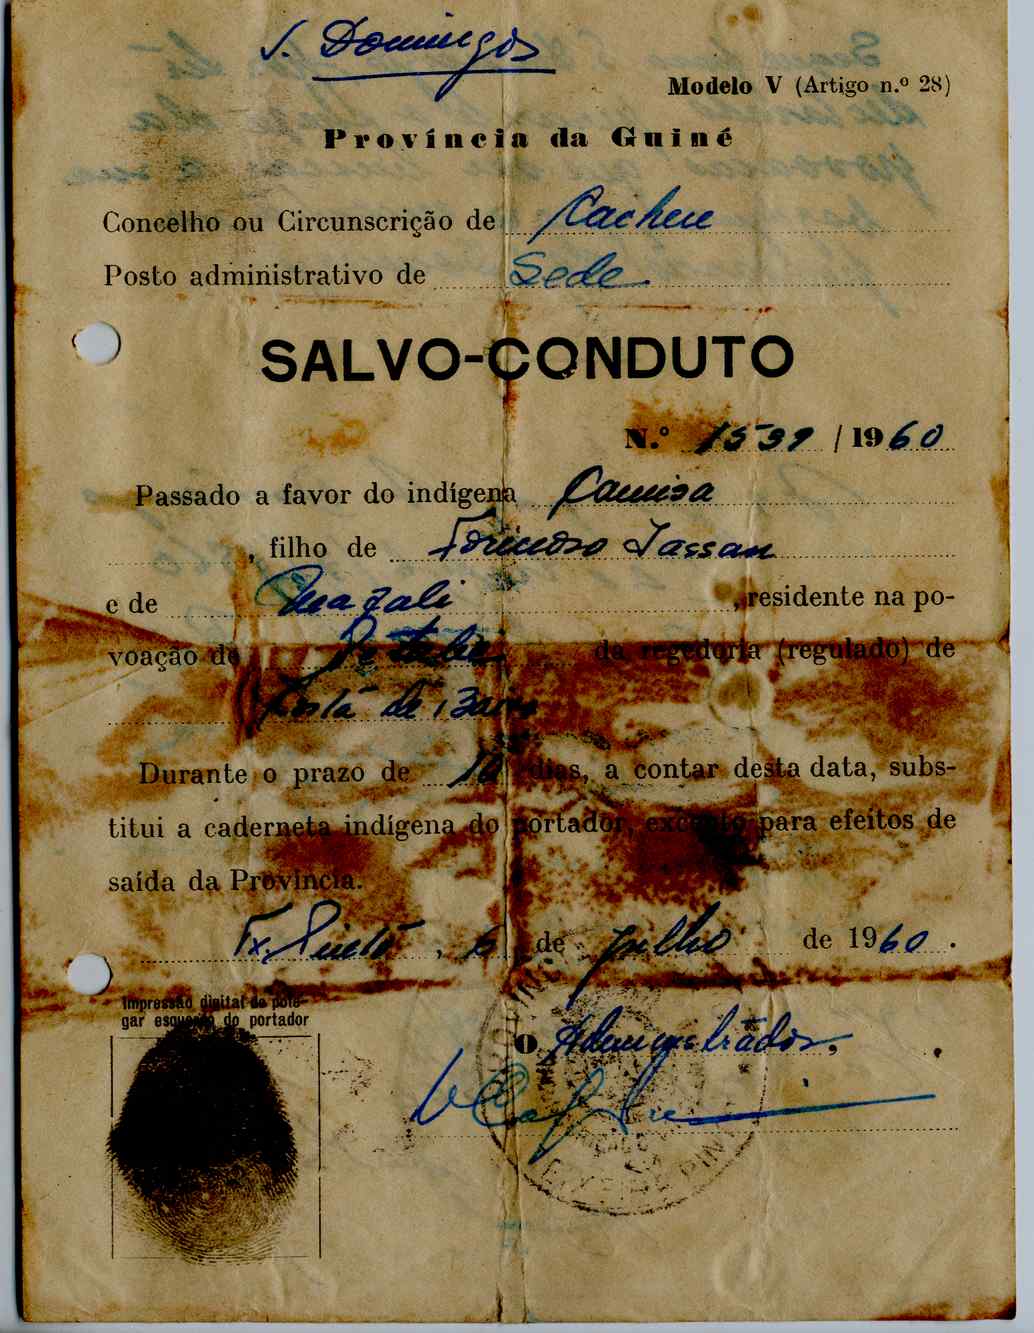 S. Domingos
Modelo V (Artigo n.º 28)
Província da Guiné
Concelho ou Circunscrição de Cacheu
Posto administrativo de Sede
SALVO-CONDUTO
N.º 1539 / 1960
Passado a favor do indígena Camisa
, filho de Formoso Jassan
e de , residente na po-
voação de da regedoria (regulado) de
Costa de Baixo
Durante o prazo de 10 dias, a contar desta data, subs-
titui a caderneta indígena do portador, excepto para efeitos de
saída da Província.
Tx. Pinto, 6 de Julho de 1960.
Impressão digital do pole-
gar esquerdo do portador
O Administrador,
TEIXEIRA PIN